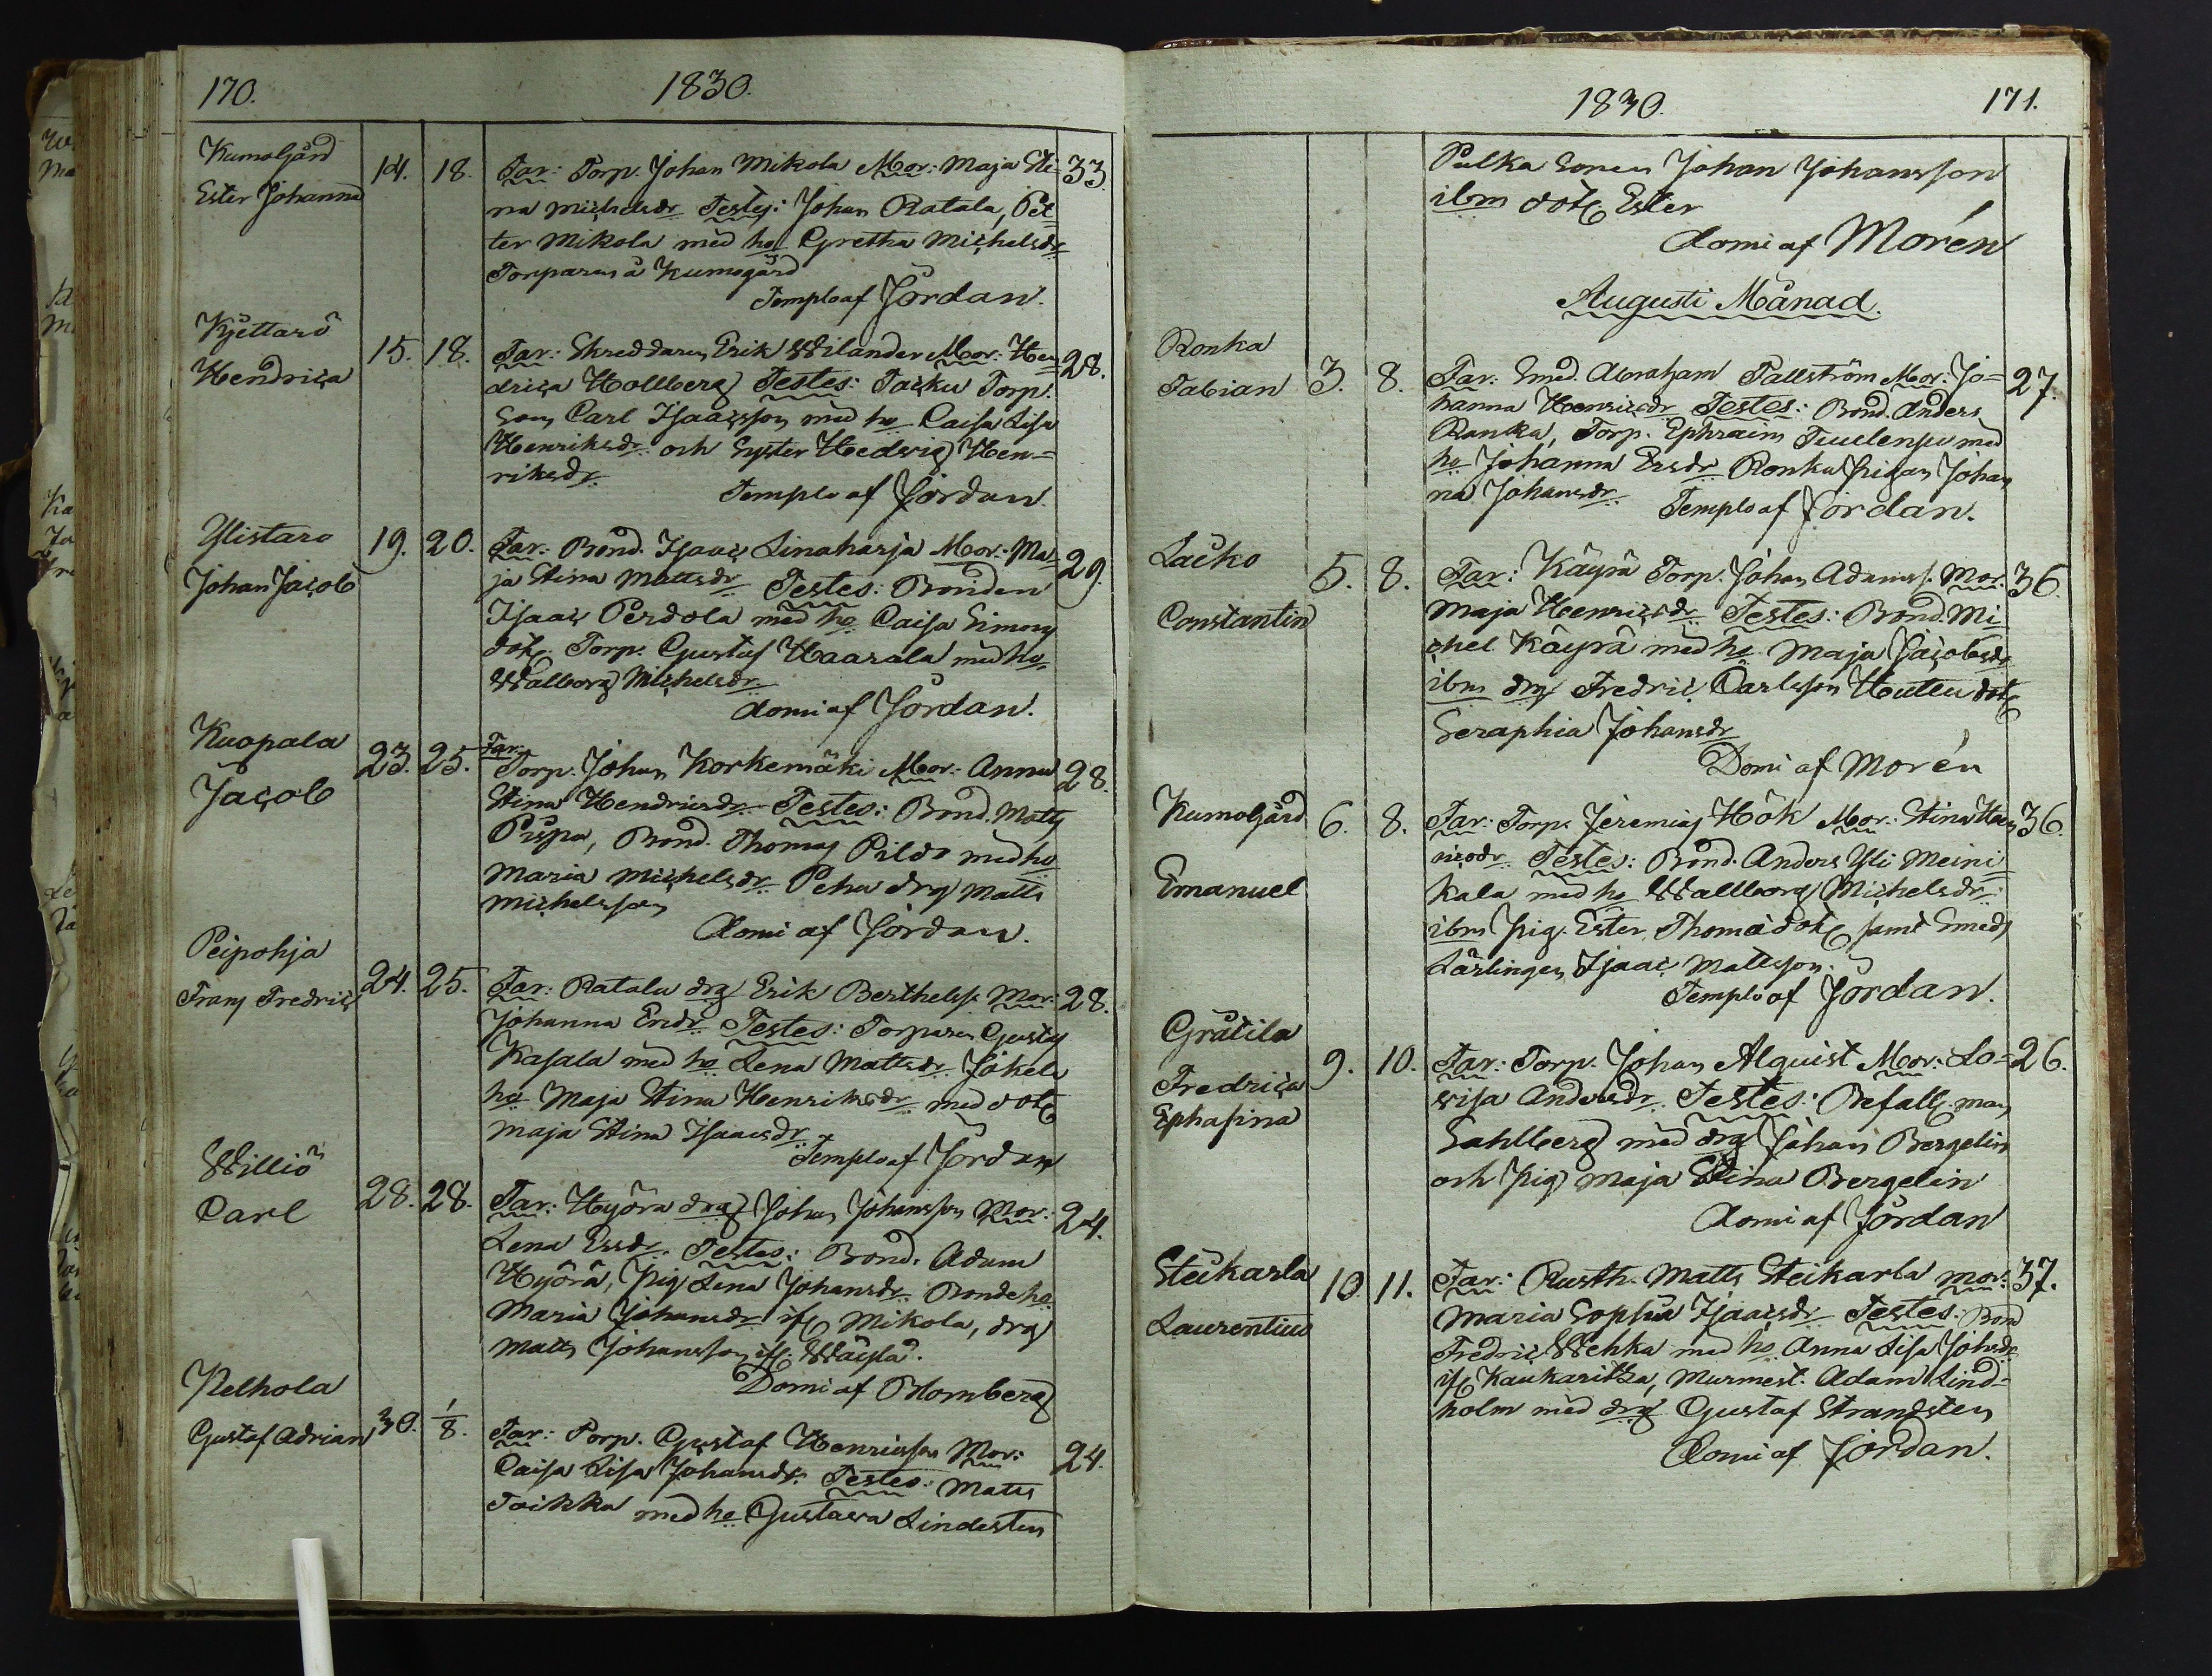 170.
1830.
Kumogård
Ester Johanna
14. 18.
Far: Torp. Johan Mikola Mor: Maja Sti-
na Michelsdr Testes: Johan Ratala, Pet
ter Mikola med ho Gretha Michelsdr
Torparen å Kumogård
Templo af Jordan.
33.
Kjettarö
Hendrica
15. 18.
Far: Skreddaren Erik Wilander Mor: Hen
drica Hollberg Testes: Torp.
Son Carl Isaacsson med ho Caisa Lisa
Henriksdr och Syster Hedvig Hen=
riksdr
Templo af Jordan.
28.
Ylistaro
Johan Jacob
19. 20.
Far: Bond. Isaac Linaharja Mor: Ma-
ja Stina Mattsdr Testes: Bonden
Isaac Perdola med ho Caisa Simons
dotr. Torp. Gustaf Haarala med ho
Walborg Michelsdr
domi af Jordan.
29.
Kuopala
Jacob
23. 25.
Far:
Torp. Johan Korkemäki Mor: Anna
Stina Hendricsdr Testes: Bond. Matts
Pispa, Bond. Thomas Pilds med ho
Maria Michelsdr Peha drg Matts
Michelsson
domi af Jordan.
28.
Peipohja
Frans Fredric
24. 25.
Far: Ratala drg Erik Berthelss. Mor:
Johanna Ersdr Testes: Torparen Gustaf
Kasala med ho Lena Mattsdr Jokela
ho Maja Stina Henriksdr med dotr
Maja Stina Isaacsdr
Templo af Jordan
28.
Williö
Carl
28. 28.
Far: Hyörä drag Johan Johansson Mor:
Lena Ersdr. Testes: Bond. Adam
Hyörä, pig Lena Johansdr Bonde ho
Maria Johansdr ifr Mikola, drg
Matts Johansson ifr.
Domi af Blomberg
24.
Pelhola
Gustaf Adrian
30. 1/8.
Far: Torp. Gustaf Henricsson Mor:
Caisa Lisa Johansdr. Testes: Matts
Toikka med ho Gustava Lindesten
24.
1830.
171.
Pulka Sonen Johan Johansson
ibm dotr. Ester
domi af Morén
Augusti Månad.
Ronka
Fabian
3. 8.
Far: Smed. Abraham Fallström Mor: Jo=
hanna Henricsdr Testes: Bond. Anders
Ronka, Torp. Ephraim med
ho Johanna Ersdr Ronka pigan Johan
na Johansdr
Templo af Jordan.
27.
Lacko
Constantin
5. 8.
Far: Käyrä Torp. Johan Adamss. Mor:
Maja Henricsdr Testes: Bond. Mi
chel Käyrä med ho Maja Jacobsdr
ibm drg Fredric Carlsson Huttu dotr
Seraphia Johansdr
Domi af Morén
36.
Kumogård
Emanuel
6. 8.
Far: Torp. Jeremias Hök Mor: Stina Hen
ricsdr Testes: Bond. Anders Yli Meini
kala med ho Wallborg Michelsdr
ibm pig. Ester Thomædotr samt Smeds
Lärlingen Isaac Mattsson.
Templo af Jordan.
36.
Gråtila
Fredrica
Ephasina
9. 10.
Far: Torp. Johan Alquist Mor: Lo=
visa Andersdr. Testes: Befallg.man
Sahlberg med drg Johan Bergelin
och pig Maja Stina Bergelin
domi af Jordan
26.
Steikarla
Laurentius
10. 11.
Far: Rusth. Matts Steikarla Mor:
Maria Sophia Isaacsdr Testes: Bond
Fredric Wehka med ho Anna Lisa Johsdr
ifr Kaukaritza, Murmest. Adam Lind-
holm med drg Gustaf Strandsten
domi af Jordan.
37.